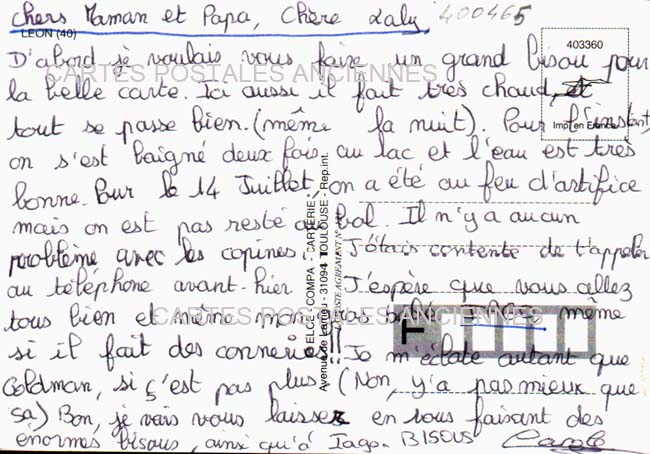 Chers Maman et Papa, Chère Laly, 400465
LEON (40)
403360
D'abord je voulais vous faire un grand bisou pour
CARTES POSTALES ANCIENNES
la belle carte. Ici aussi, il fait très chaud, et
Imp. en France
tout se passe bien. (même la nuit). Pour l'instant,
on s'est baigné deux fois au lac et l'eau est très
bonne. Pour le 14 Juillet, on a été au feu d'artifice
mais on est pas resté au bal. Il n'y a aucun
problème avec les copines. J'étais contente de t'appeler
au téléphone avant-hier. J'espère que vous allez
CARTES POSTALES ANCIENNES
tous bien et même mon gros bébé IAGO même
si il fait des conneries!! Je m'éclate autant que
Goldman, si ç'est pas plus! (Non, y'a pas mieux que
ça) Bon, je vais vous laisser en vous faisant des
énormes bisous, ainsi qu'à Iago. BISOUS
Carole
ELCE - COMPA - CARTERIE -
31094 TOULOUSE - Rep.int.
T